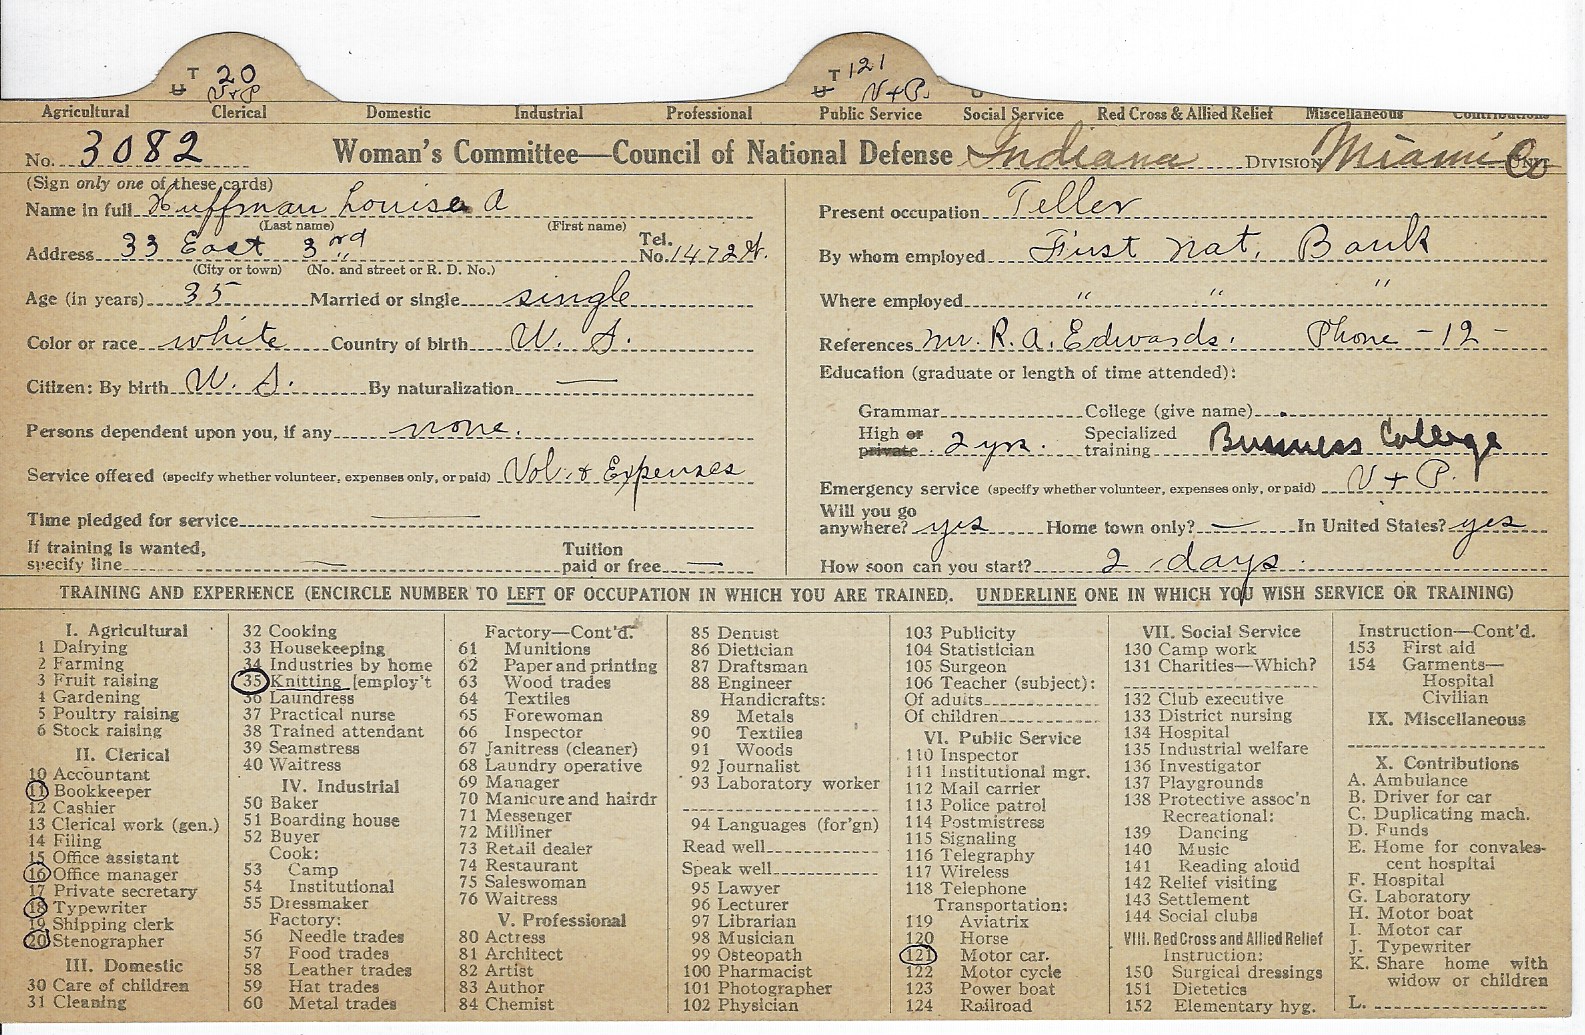 T 20 T 121
U V+P U V+P.
Agricultural Clerical Domestic Industrial Professional Public Service Social Service Red Cross & Allied Relief Miscellaneous Contributions
No. 3082 Woman's Committee—Council of National Defense Indiana DIVISION Miami Co UNIT
(Sign only one of these cards)
Name in full Huffman Louise A
(Last name) (First name)
Address 33 East 3rd Tel. No. 1472W.
(City or town) (No. and street or R. D. No.)
Age (in years) 35 Married or single single
Color or race white Country of birth U. S.
Citizen: By birth U. S. By naturalization —
Persons dependent upon you, if any none.
Service offered (specify whether volunteer, expenses only, or paid) Vol. & Expenses
Time pledged for service —
If training is wanted, Tuition
specify line — paid or free —
Present occupation Teller
By whom employed First Nat. Bank
Where employed " " "
References Mr. R. A. Edwards. Phone - 12 -
Education (graduate or length of time attended):
Grammar College (give name)
High or private 2 yrs. Specialized training Business College
Emergency service (specify whether volunteer, expenses only, or paid) V + P.
Will you go
anywhere? yes Home town only? — In United States? yes
How soon can you start? 2 days.
TRAINING AND EXPERIENCE (ENCIRCLE NUMBER TO LEFT OF OCCUPATION IN WHICH YOU ARE TRAINED. UNDERLINE ONE IN WHICH YOU WISH SERVICE OR TRAINING)
I. Agricultural
1 Dairying
2 Farming
3 Fruit raising
4 Gardening
5 Poultry raising
6 Stock raising
II. Clerical
10 Accountant
11 Bookkeeper
12 Cashier
13 Clerical work (gen.)
14 Filing
15 Office assistant
16 Office manager
17 Private secretary
18 Typewriter
19 Shipping clerk
20 Stenographer
III. Domestic
30 Care of children
31 Cleaning
32 Cooking
33 Housekeeping
34 Industries by home
35 Knitting [employ't
36 Laundress
37 Practical nurse
38 Trained attendant
39 Seamstress
40 Waitress
IV. Industrial
50 Baker
51 Boarding house
52 Buyer
Cook:
53 Camp
54 Institutional
55 Dressmaker
Factory:
56 Needle trades
57 Food trades
58 Leather trades
59 Hat trades
60 Metal trades
Factory—Cont'd.
61 Munitions
62 Paper and printing
63 Wood trades
64 Textiles
65 Forewoman
66 Inspector
67 Janitress (cleaner)
68 Laundry operative
69 Manager
70 Manicure and hairdr
71 Messenger
72 Milliner
73 Retail dealer
74 Restaurant
75 Saleswoman
76 Waitress
V. Professional
80 Actress
81 Architect
82 Artist
83 Author
84 Chemist
85 Dentist
86 Dietician
87 Draftsman
88 Engineer
Handicrafts:
89 Metals
90 Textiles
91 Woods
92 Journalist
93 Laboratory worker
94 Languages (for'gn)
Read well
Speak well
95 Lawyer
96 Lecturer
97 Librarian
98 Musician
99 Osteopath
100 Pharmacist
101 Photographer
102 Physician
103 Publicity
104 Statistician
105 Surgeon
106 Teacher (subject):
Of adults
Of children
VI. Public Service
110 Inspector
111 Institutional mgr.
112 Mail carrier
113 Police patrol
114 Postmistress
115 Signaling
116 Telegraphy
117 Wireless
118 Telephone
Transportation:
119 Aviatrix
120 Horse
121 Motor car.
122 Motor cycle
123 Power boat
124 Railroad
VII. Social Service
130 Camp work
131 Charities—Which?
132 Club executive
133 District nursing
134 Hospital
135 Industrial welfare
136 Investigator
137 Playgrounds
138 Protective assoc'n
Recreational:
139 Dancing
140 Music
141 Reading aloud
142 Relief visiting
143 Settlement
144 Social clubs
VIII. Red Cross and Allied Relief
Instruction:
150 Surgical dressings
151 Dietetics
152 Elementary hyg.
Instruction—Cont'd.
153 First aid
154 Garments—
Hospital
Civilian
IX. Miscellaneous
X. Contributions
A. Ambulance
B. Driver for car
C. Duplicating mach.
D. Funds
E. Home for convales-
cent hospital
F. Hospital
G. Laboratory
H. Motor boat
I. Motor car
J. Typewriter
K. Share home with
widow or children
L.